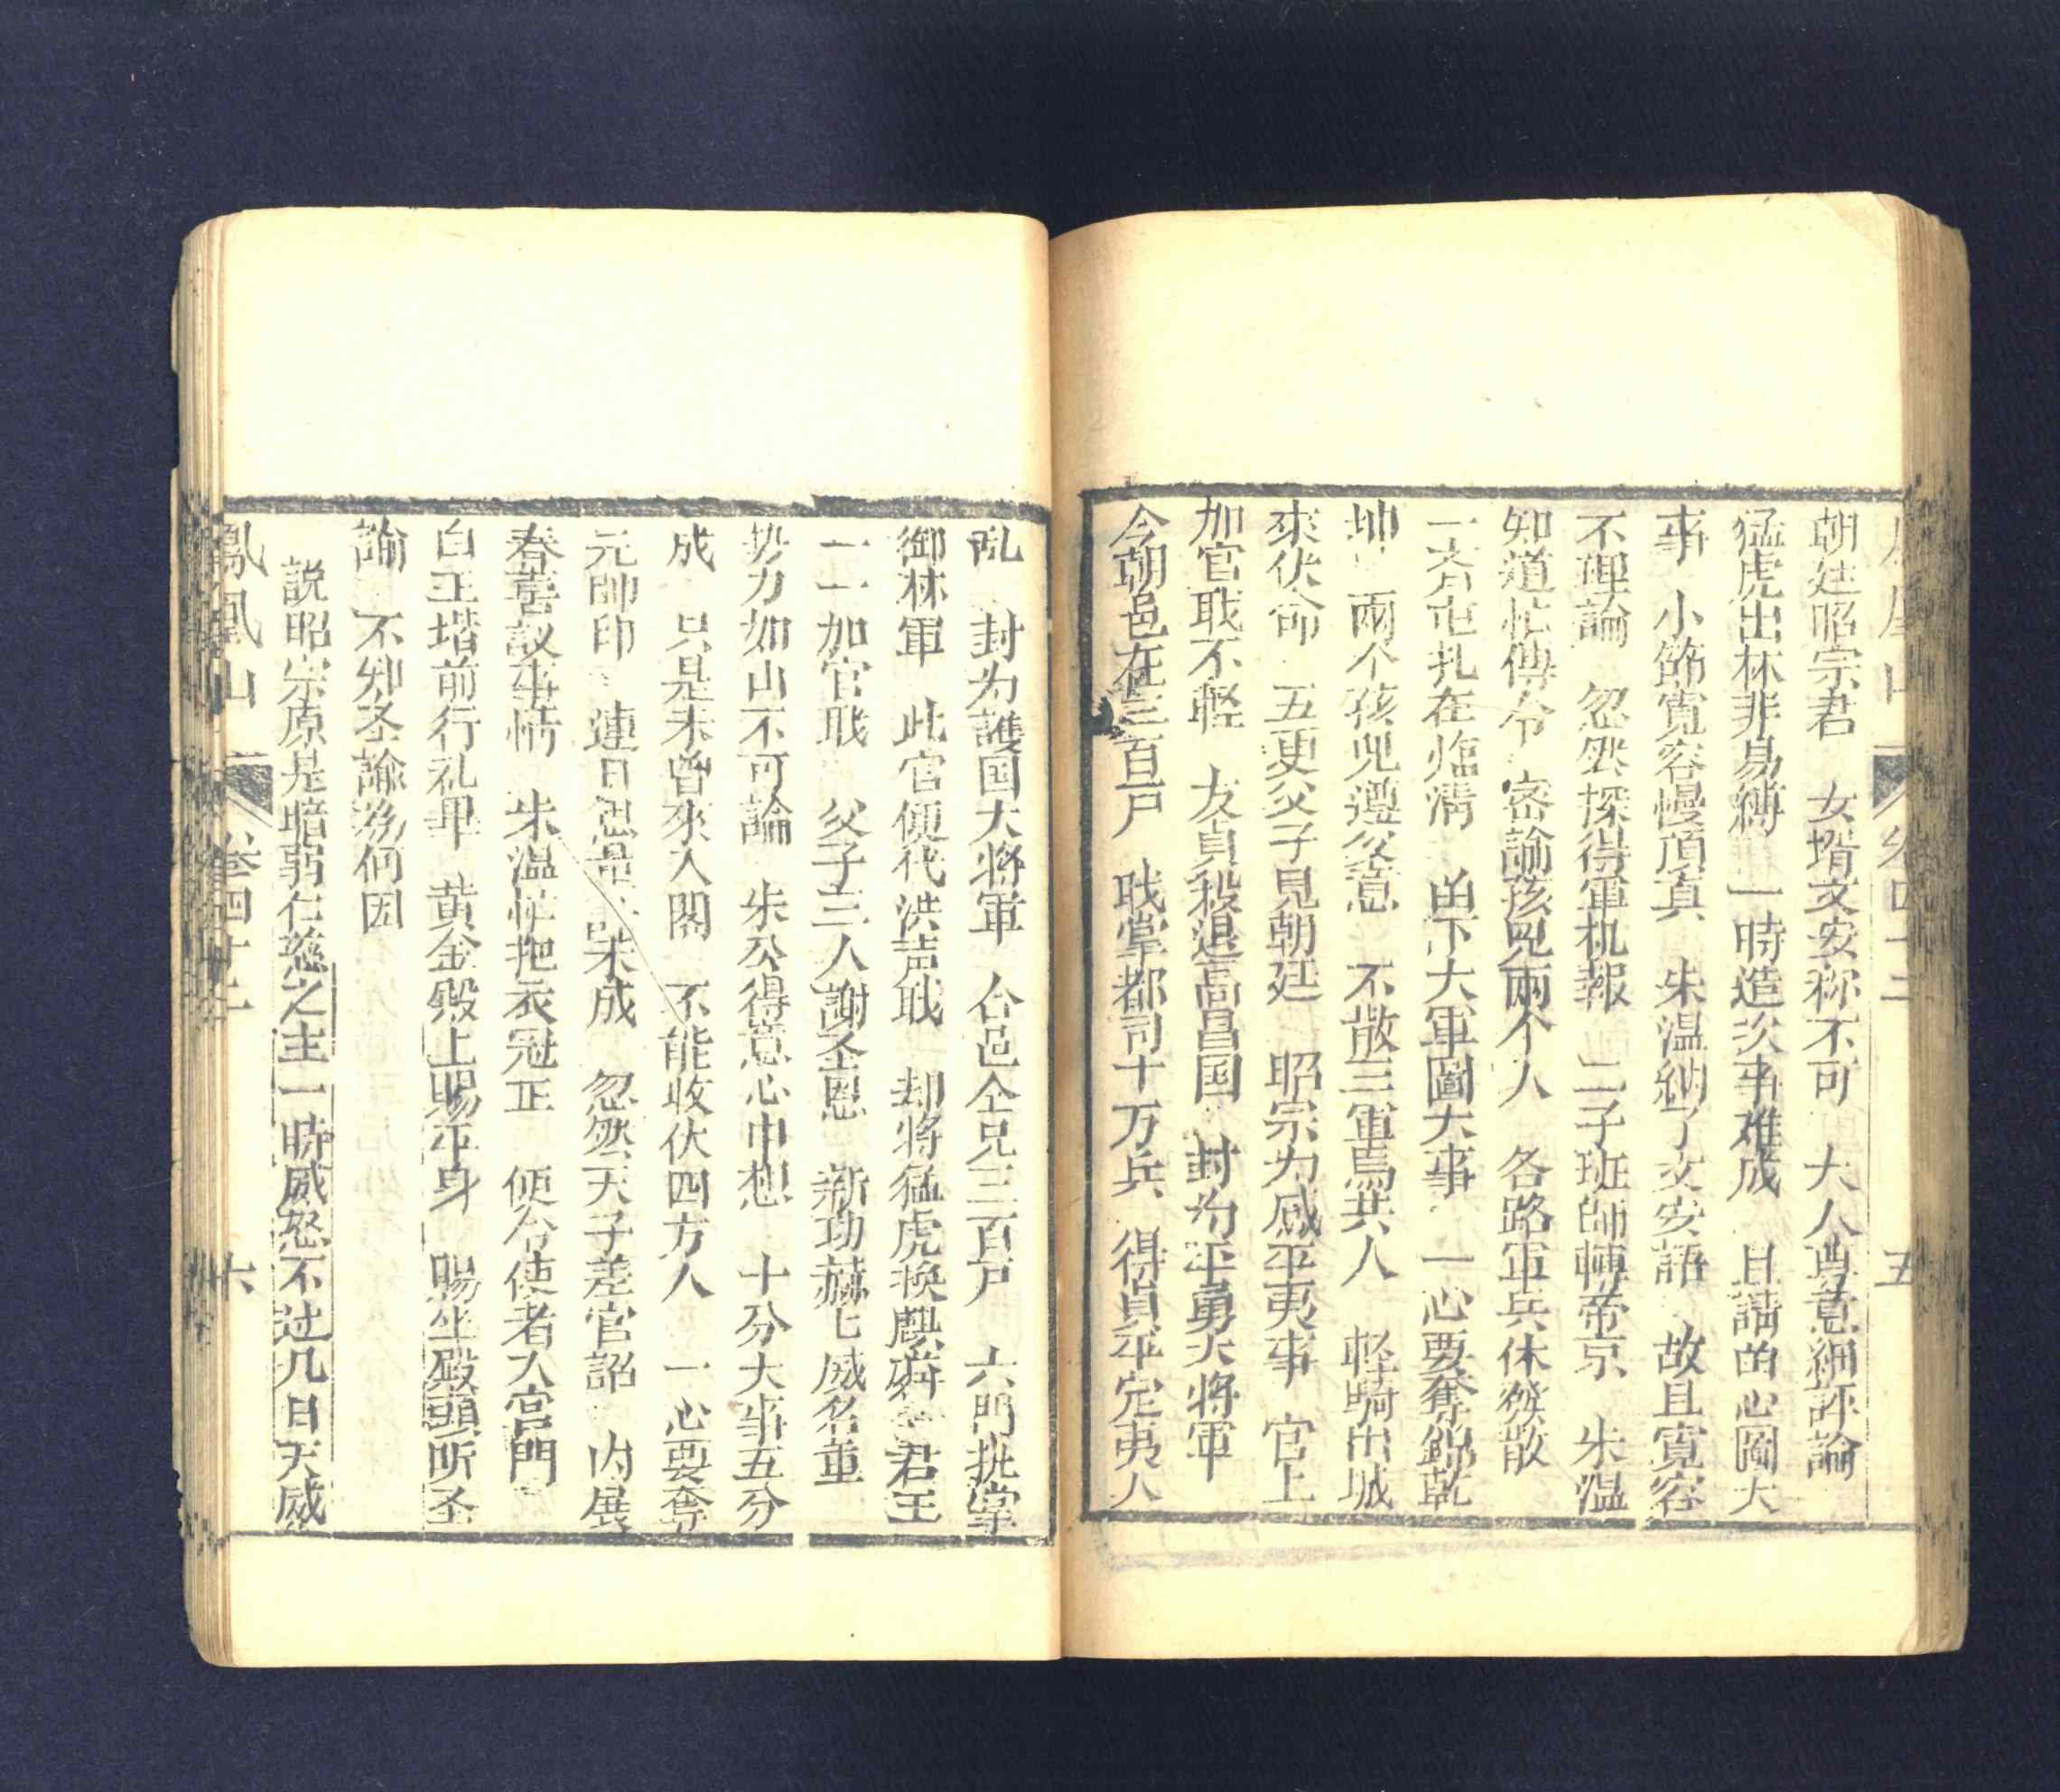 朝廷昭宗君　女壻文安称不可　大人尊意細評論
猛虎出林非易縛　一時造次事难成　且請留心圖大
事　小節寬容慢頂真　朱温納了文安語　故且寬容
不理論　忽然探得軍机報　二子班師轉帝京　朱温
知道忙傳令　密諭孩兒兩个人　各路軍兵休發散
一齐屯扎在临清　留下大軍圖大事　一心要奪錦乾
坤　兩个孩兒遵父意　不散三軍馬共人　軽騎出城
來伏命　五更父子見朝廷　昭宗为感平夷事　官上
加官戢不輕　友貞殺退高昌国　封为平勇大將軍
今朝邑在三百户　戢掌都司十万兵　得貞平定夷人
乱　封为護国大将軍　合邑仝兄三百户　六門挑掌
御林軍　此官便代洪声戢　却将猛虎换麒麟　君王
一一加官戢　父子三人謝圣恩　新功赫七威名重
势力如山不可論　朱公得意心中想　十分大事五分
成　只是未曾來入閣　不能收伏四方人　一心要奪
元帥印　連日思量 未成　忽然天子差官詔　内展
春善議事情　朱温忙把衣冠正　便合使者入宫門
白玉堦前行礼畢　黄金殿上賜平身　賜坐殿頭听圣
諭　不知圣諭為何因
説昭宗原是暗弱仁慈之主一時威怒不过几日天威
鳳凰山　卷四十二　六